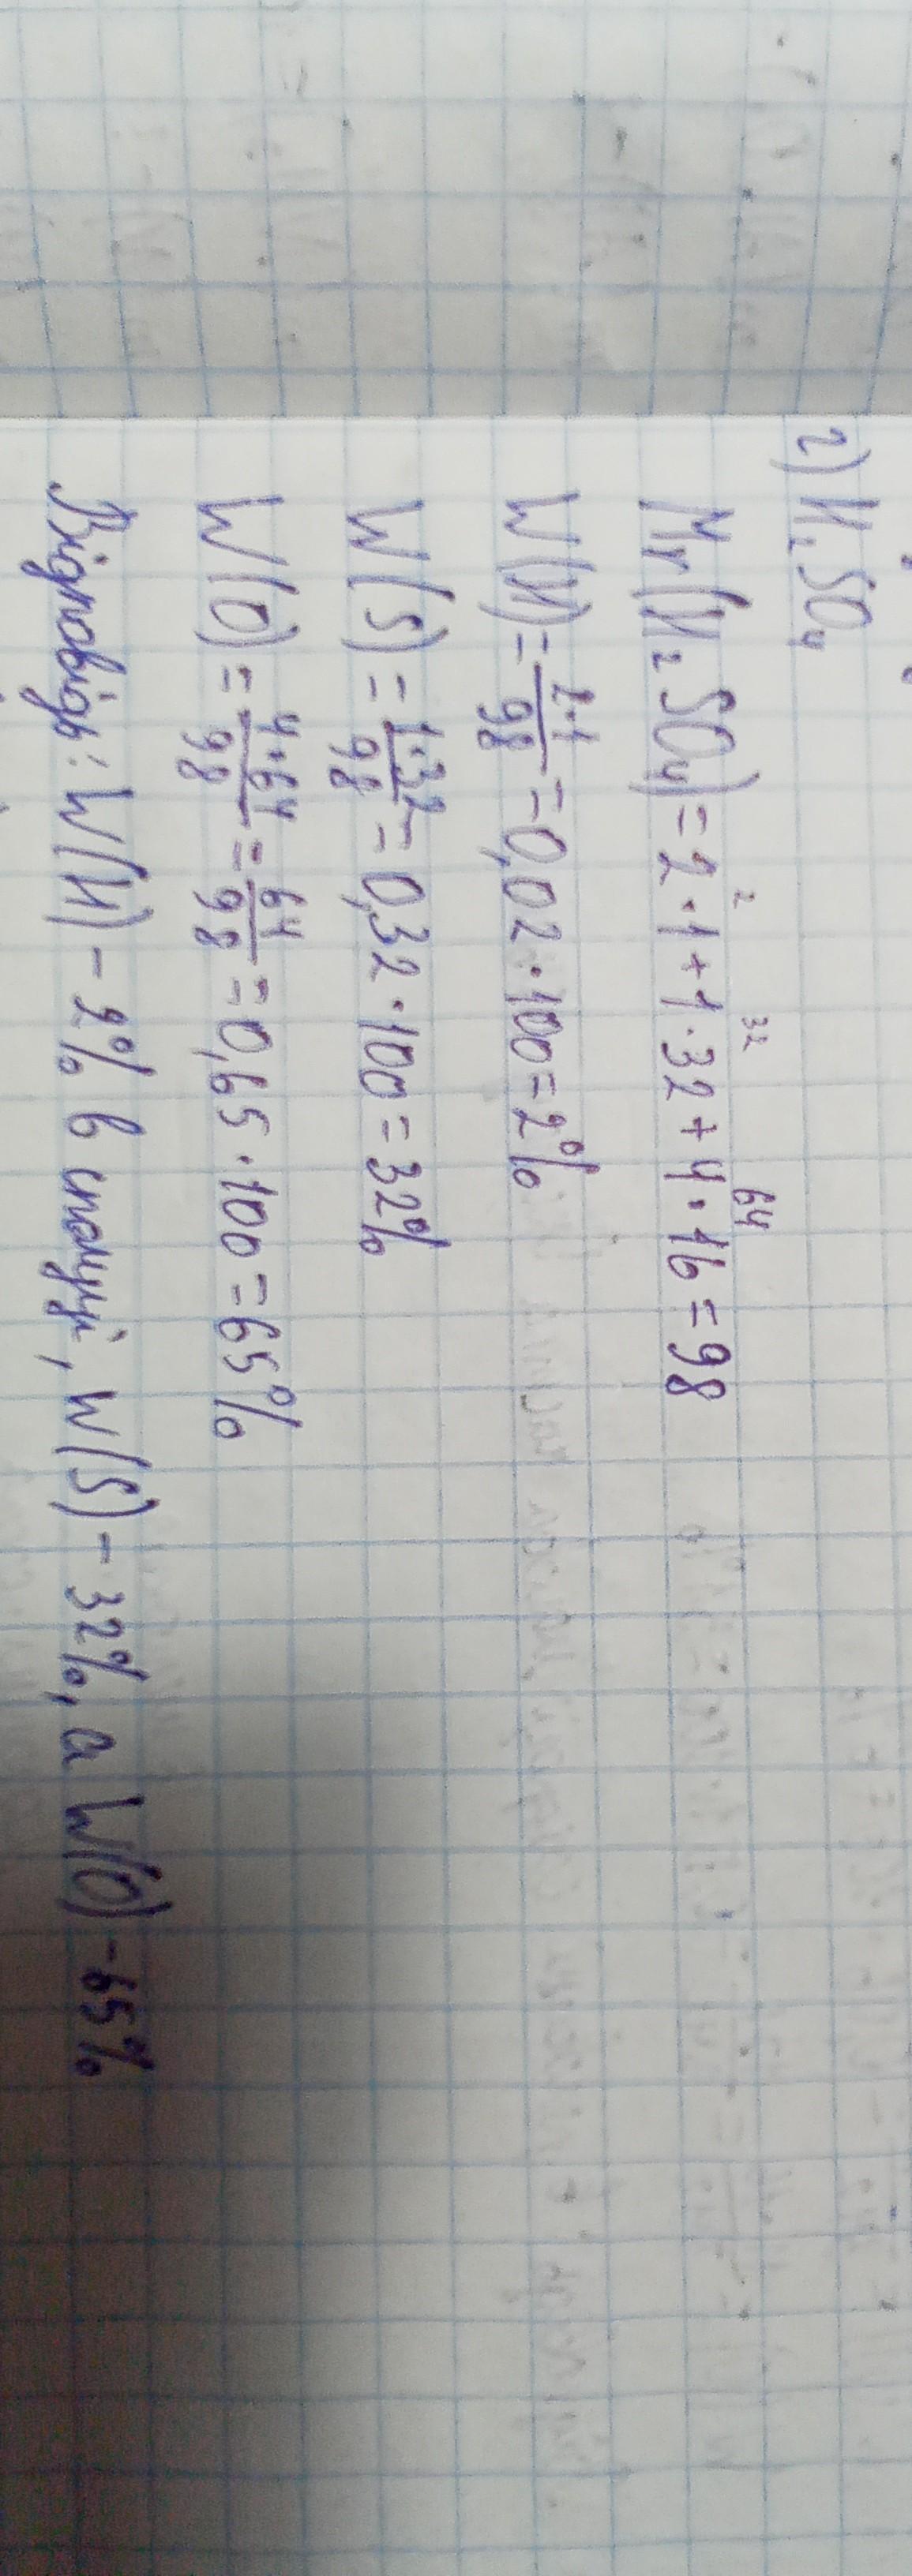 2) H₂SO₄
Mr(H₂SO₄) = 2·1 + 1·32 + 4·16 = 98
2 32 64
W(H) = 2·1/98 = 0,02·100 = 2%
W(S) = 1·32/98 = 0,32·100 = 32%
W(O) = 4·64/98 = 64/98 = 0,65·100 = 65%
Відповідь: W(H) – 2% в сполуці, W(S) – 32%, а W(O) – 65%